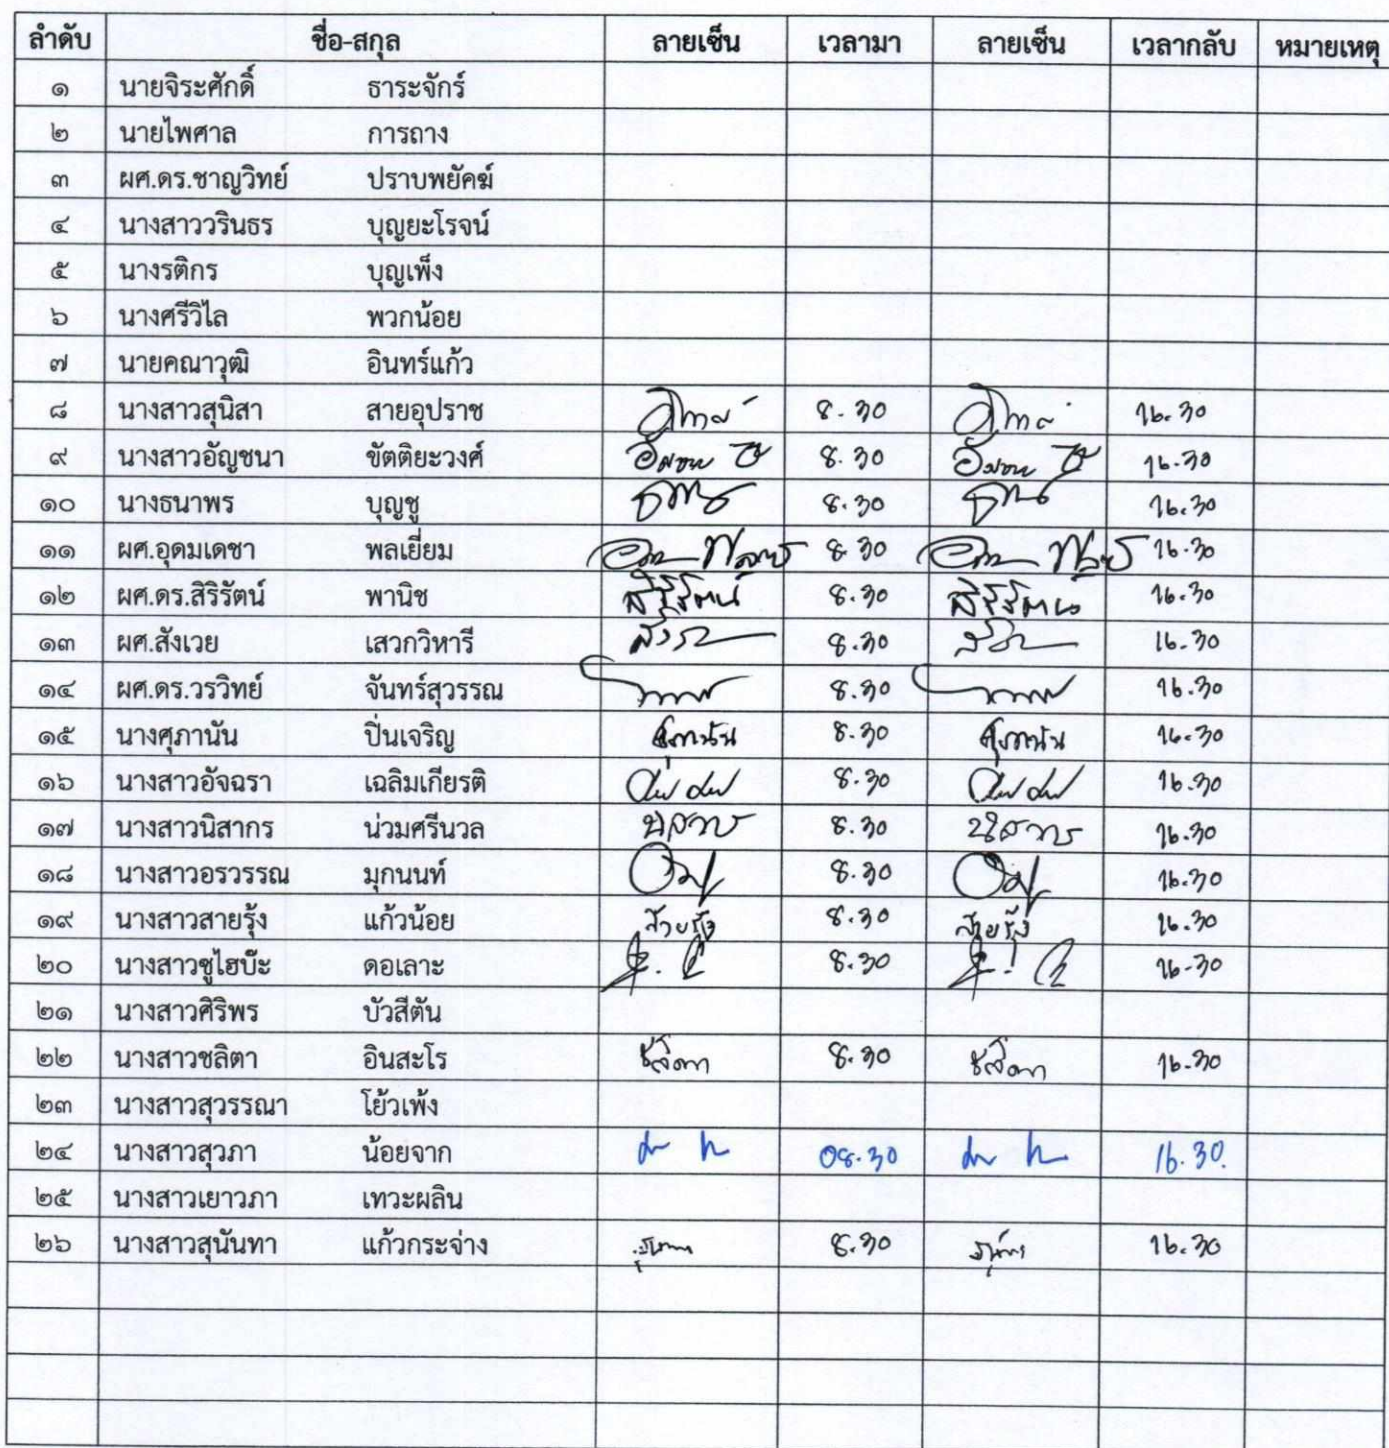 ลำดับ ชื่อ-สกุล ลายเซ็น เวลามา ลายเซ็น เวลากลับ หมายเหตุ
๑ นายจิระศักดิ์ ธาระจักร์
๒ นายไพศาล การถาง
๓ ผศ.ดร.ชาญวิทย์ ปราบพยัคฆ์
๔ นางสาววรินธร บุญยะโรจน์
๕ นางรติกร บุญเพ็ง
๖ นางศรีวิไล พวกน้อย
๗ นายคณาวุฒิ อินทร์แก้ว
๘ นางสาวสุนิสา สายอุปราช 8.30 16.30
๙ นางสาวอัญชนา ขัตติยะวงศ์ 8.30 16.30
๑๐ นางธนาพร บุญชู 8.30 16.30
๑๑ ผศ.อุดมเดชา พลเยี่ยม 8.30 16.30
๑๒ ผศ.ดร.สิริรัตน์ พานิช สิริรัตน์ 8.30 สิริรัตน์ 16.30
๑๓ ผศ.สังเวย เสวกวิหารี 8.30 16.30
๑๔ ผศ.ดร.วรวิทย์ จันทร์สุวรรณ 8.30 16.30
๑๕ นางศุภานัน ปิ่นเจริญ ศุภานัน 8.30 ศุภานัน 16.30
๑๖ นางสาวอัจฉรา เฉลิมเกียรติ 8.30 16.30
๑๗ นางสาวนิสากร น่วมศรีนวล 8.30 16.30
๑๘ นางสาวอรวรรณ มุกนนท์ 8.30 16.30
๑๙ นางสาวสายรุ้ง แก้วน้อย สายรุ้ง 8.30 สายรุ้ง 16.30
๒๐ นางสาวซูไฮบ๊ะ ดอเลาะ 8.30 16.30
๒๑ นางสาวศิริพร บัวสีตัน
๒๒ นางสาวชลิตา อินสะโร ชลิตา 8.30 ชลิตา 16.30
๒๓ นางสาวสุวรรณา โย้วเพ้ง
๒๔ นางสาวสุวภา น้อยจาก 08.30 16.30.
๒๕ นางสาวเยาวภา เทวะผลิน
๒๖ นางสาวสุนันทา แก้วกระจ่าง 8.30 16.30